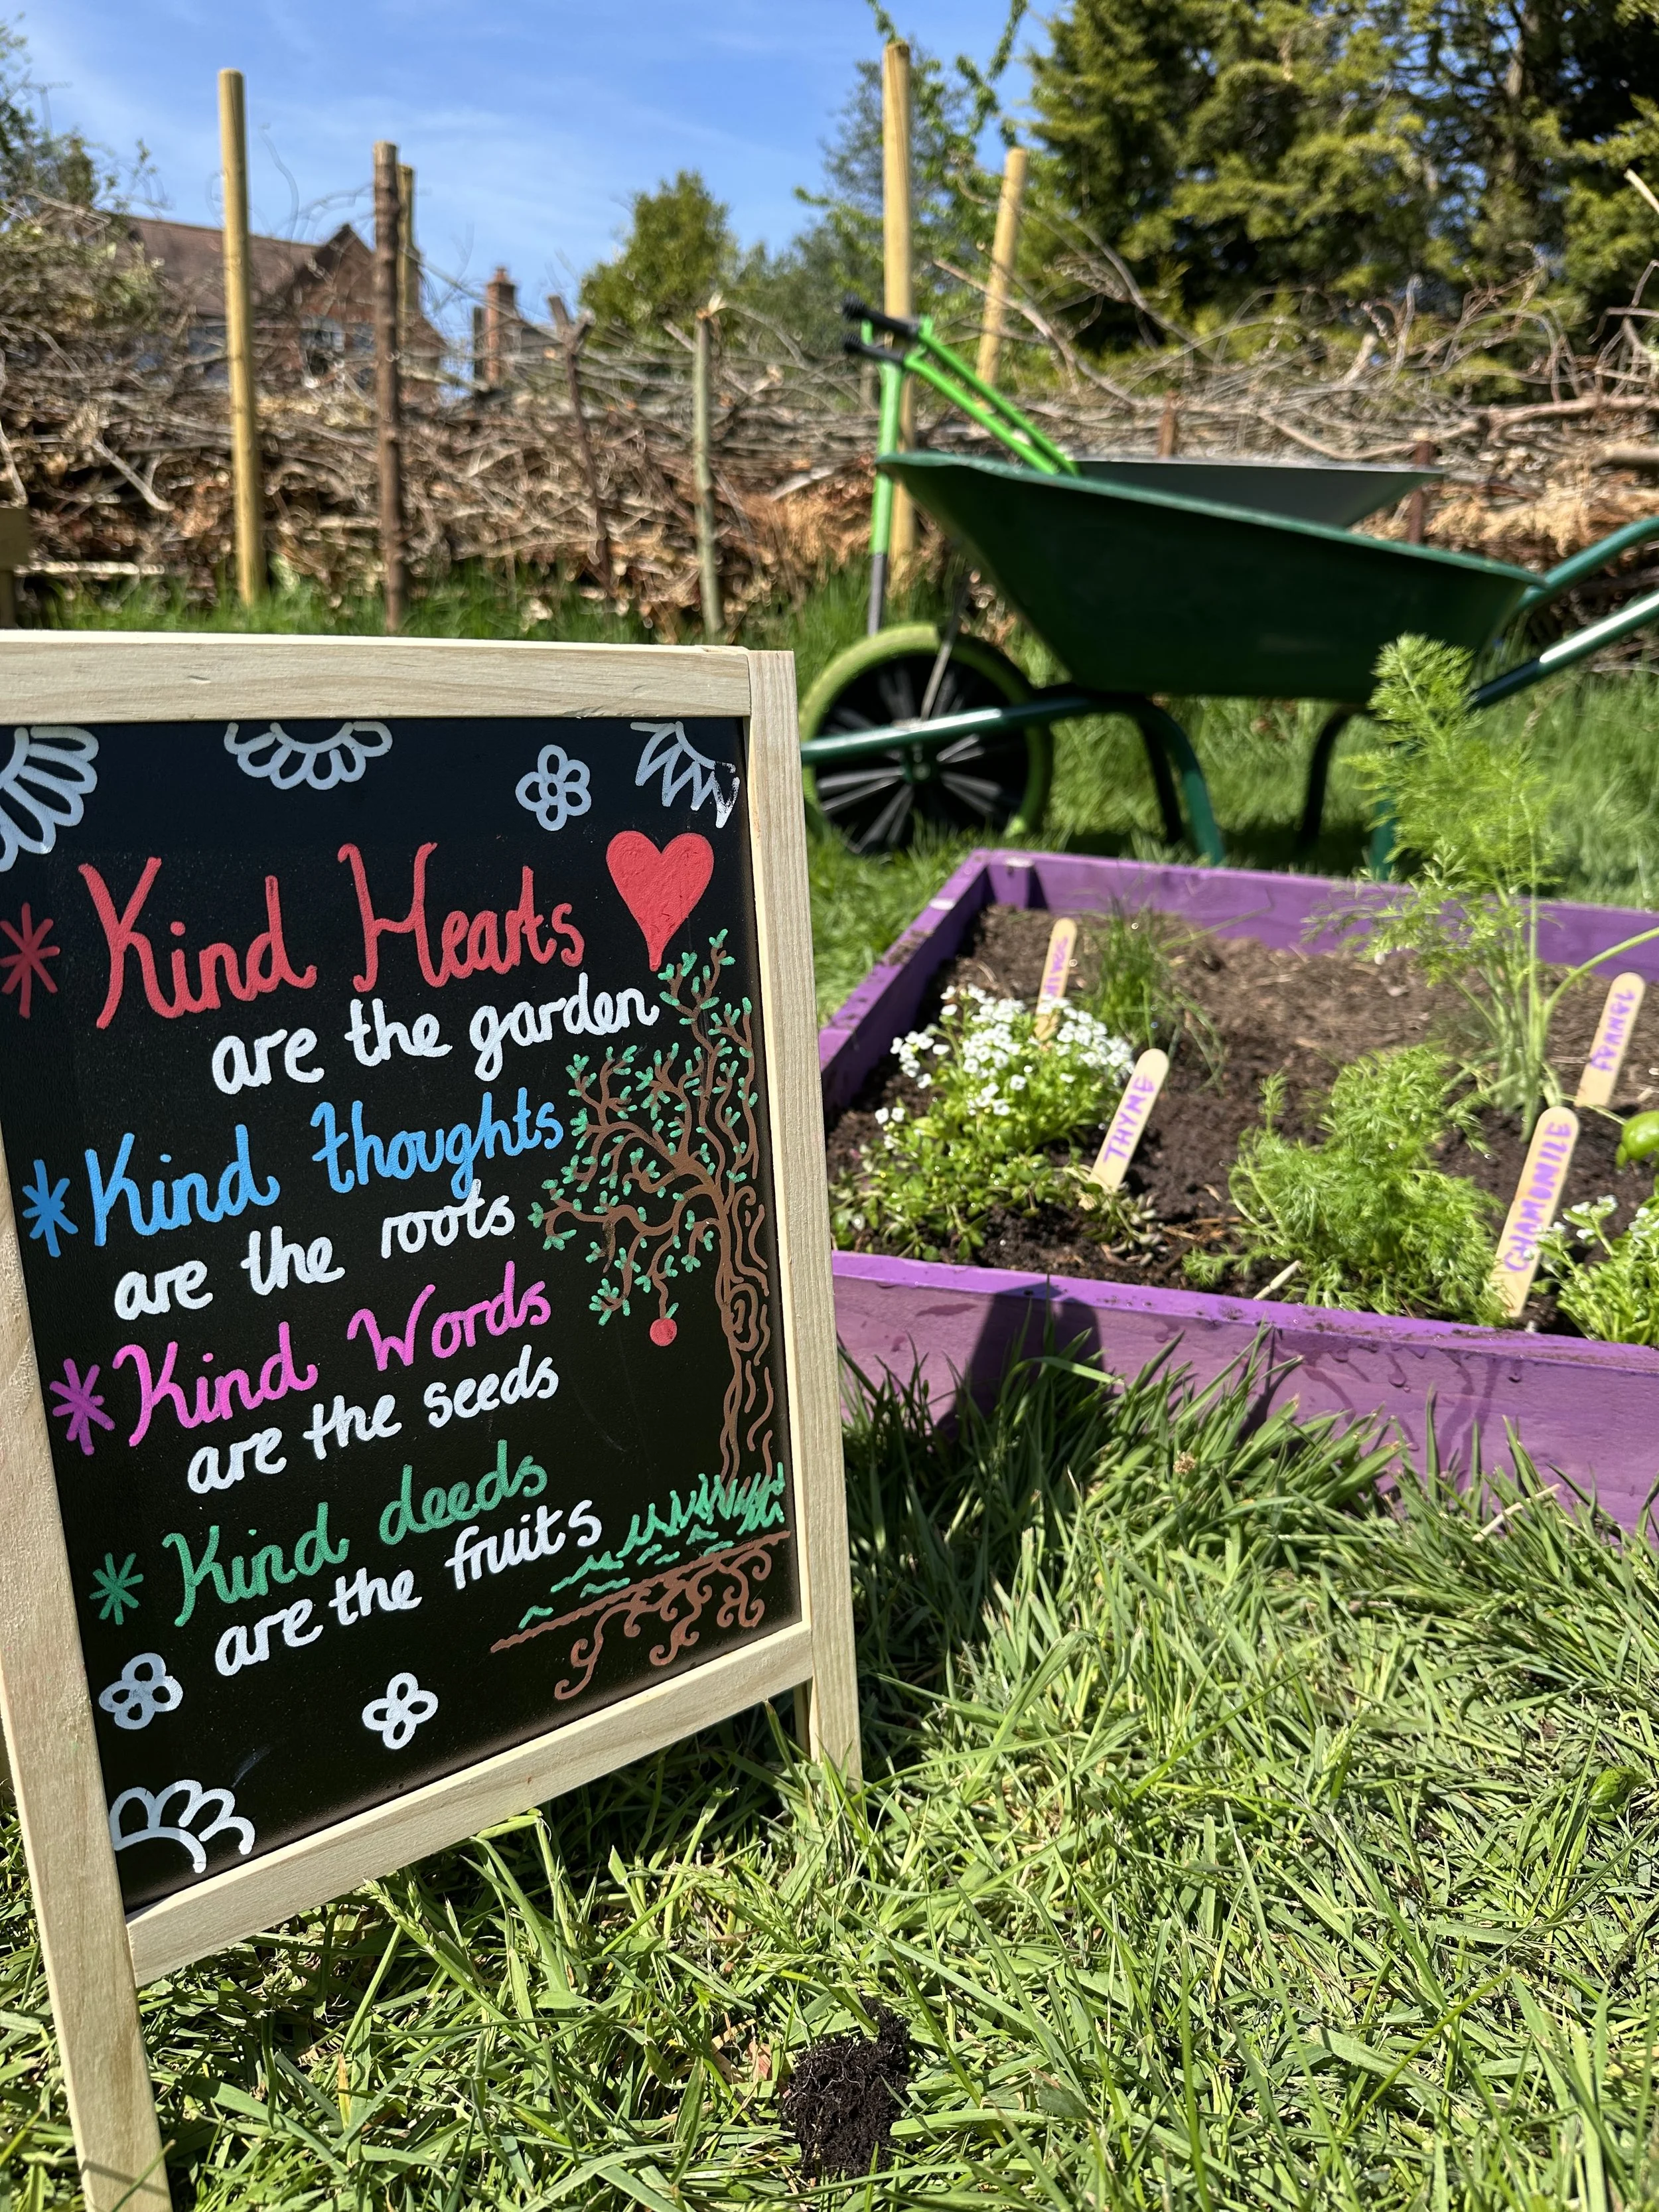 Kind Hearts
are the garden
Kind thoughts
are the roots
Kind Words
are the seeds
Kind deeds
are the fruits
THYME
CHAMOMILE
FENNEL